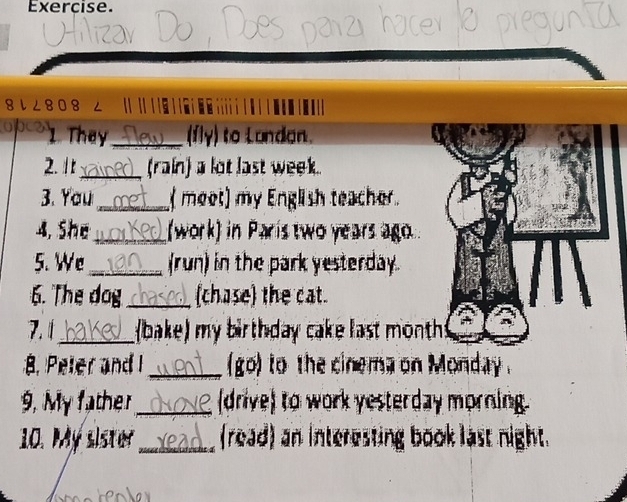 Exercise.
Utilizar Do, Does para hacer la pregunta
7 808718
1. They flew (fly) to London.
2. It rained (rain) a lot last week.
3. You met (meet) my English teacher.
4. She worked (work) in Paris two years ago.
5. We ran (run) in the park yesterday.
6. The dog chased (chase) the cat.
7. I baked (bake) my birthday cake last month
8. Peter and I went (go) to the cinema on Monday.
9. My father drove (drive) to work yesterday morning.
10. My sister read (read) an interesting book last night.